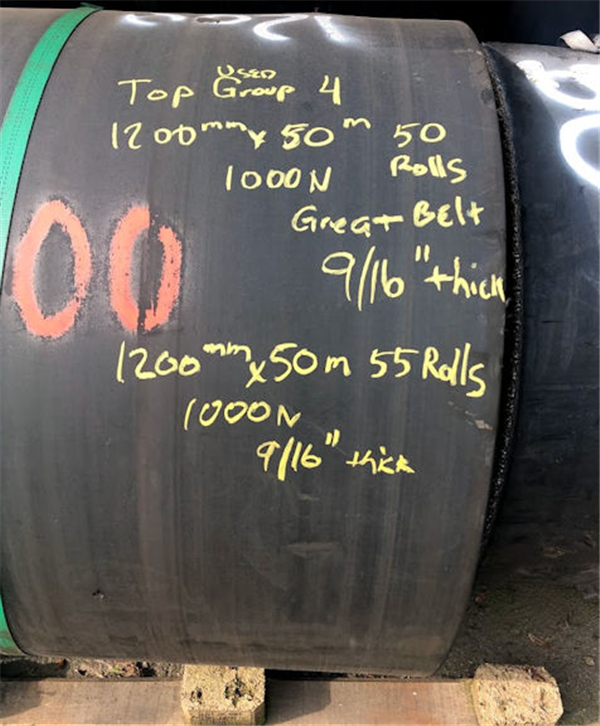 Used
Top Group 4
1200mm x 50m 50
Rolls
1000N
Great Belt
9/16" thick
00
1200mm x 50m 55 Rolls
1000N
9/16" thick